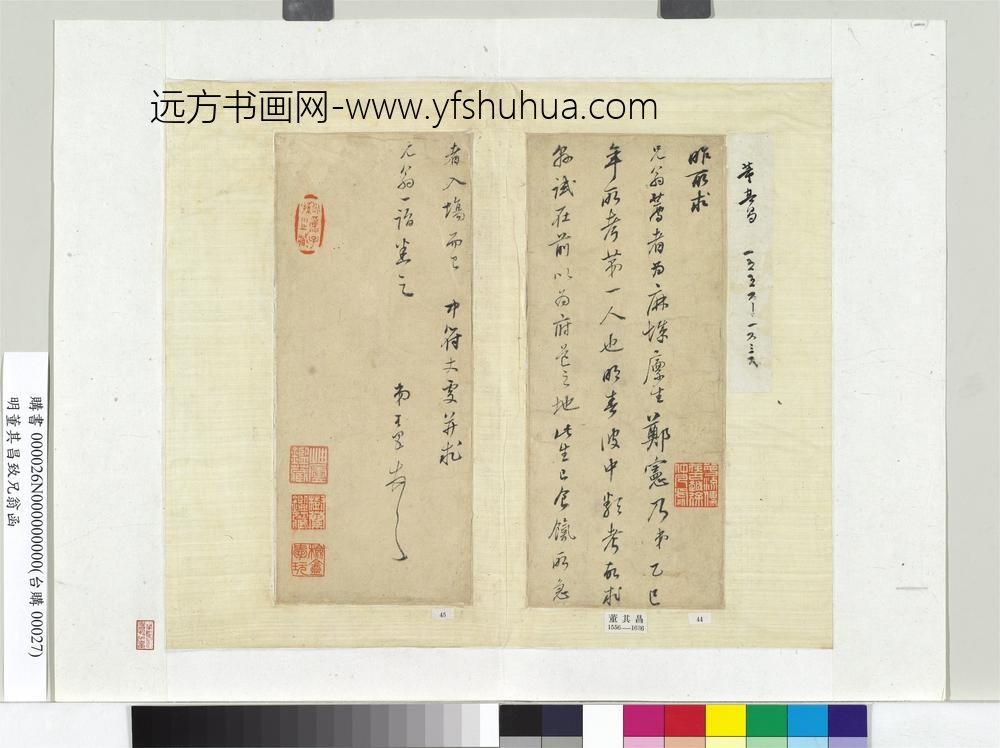 远方书画网-www.yfshuhua.com
董其昌 一五五六-一六三六
昨所求
兄翁薦者为麻城廪生鄭憲乃弟乙巳
年所考第一人也明春彼中類考故求
縣試在前以為府道之地此生已食餼所急
者入塲而已 中符丈處并求
兄翁一語鉴之
弟其昌
董其昌
1556—1636
44
45
購書 000026N000000000(台購 00027)
明董其昌致兄翁函